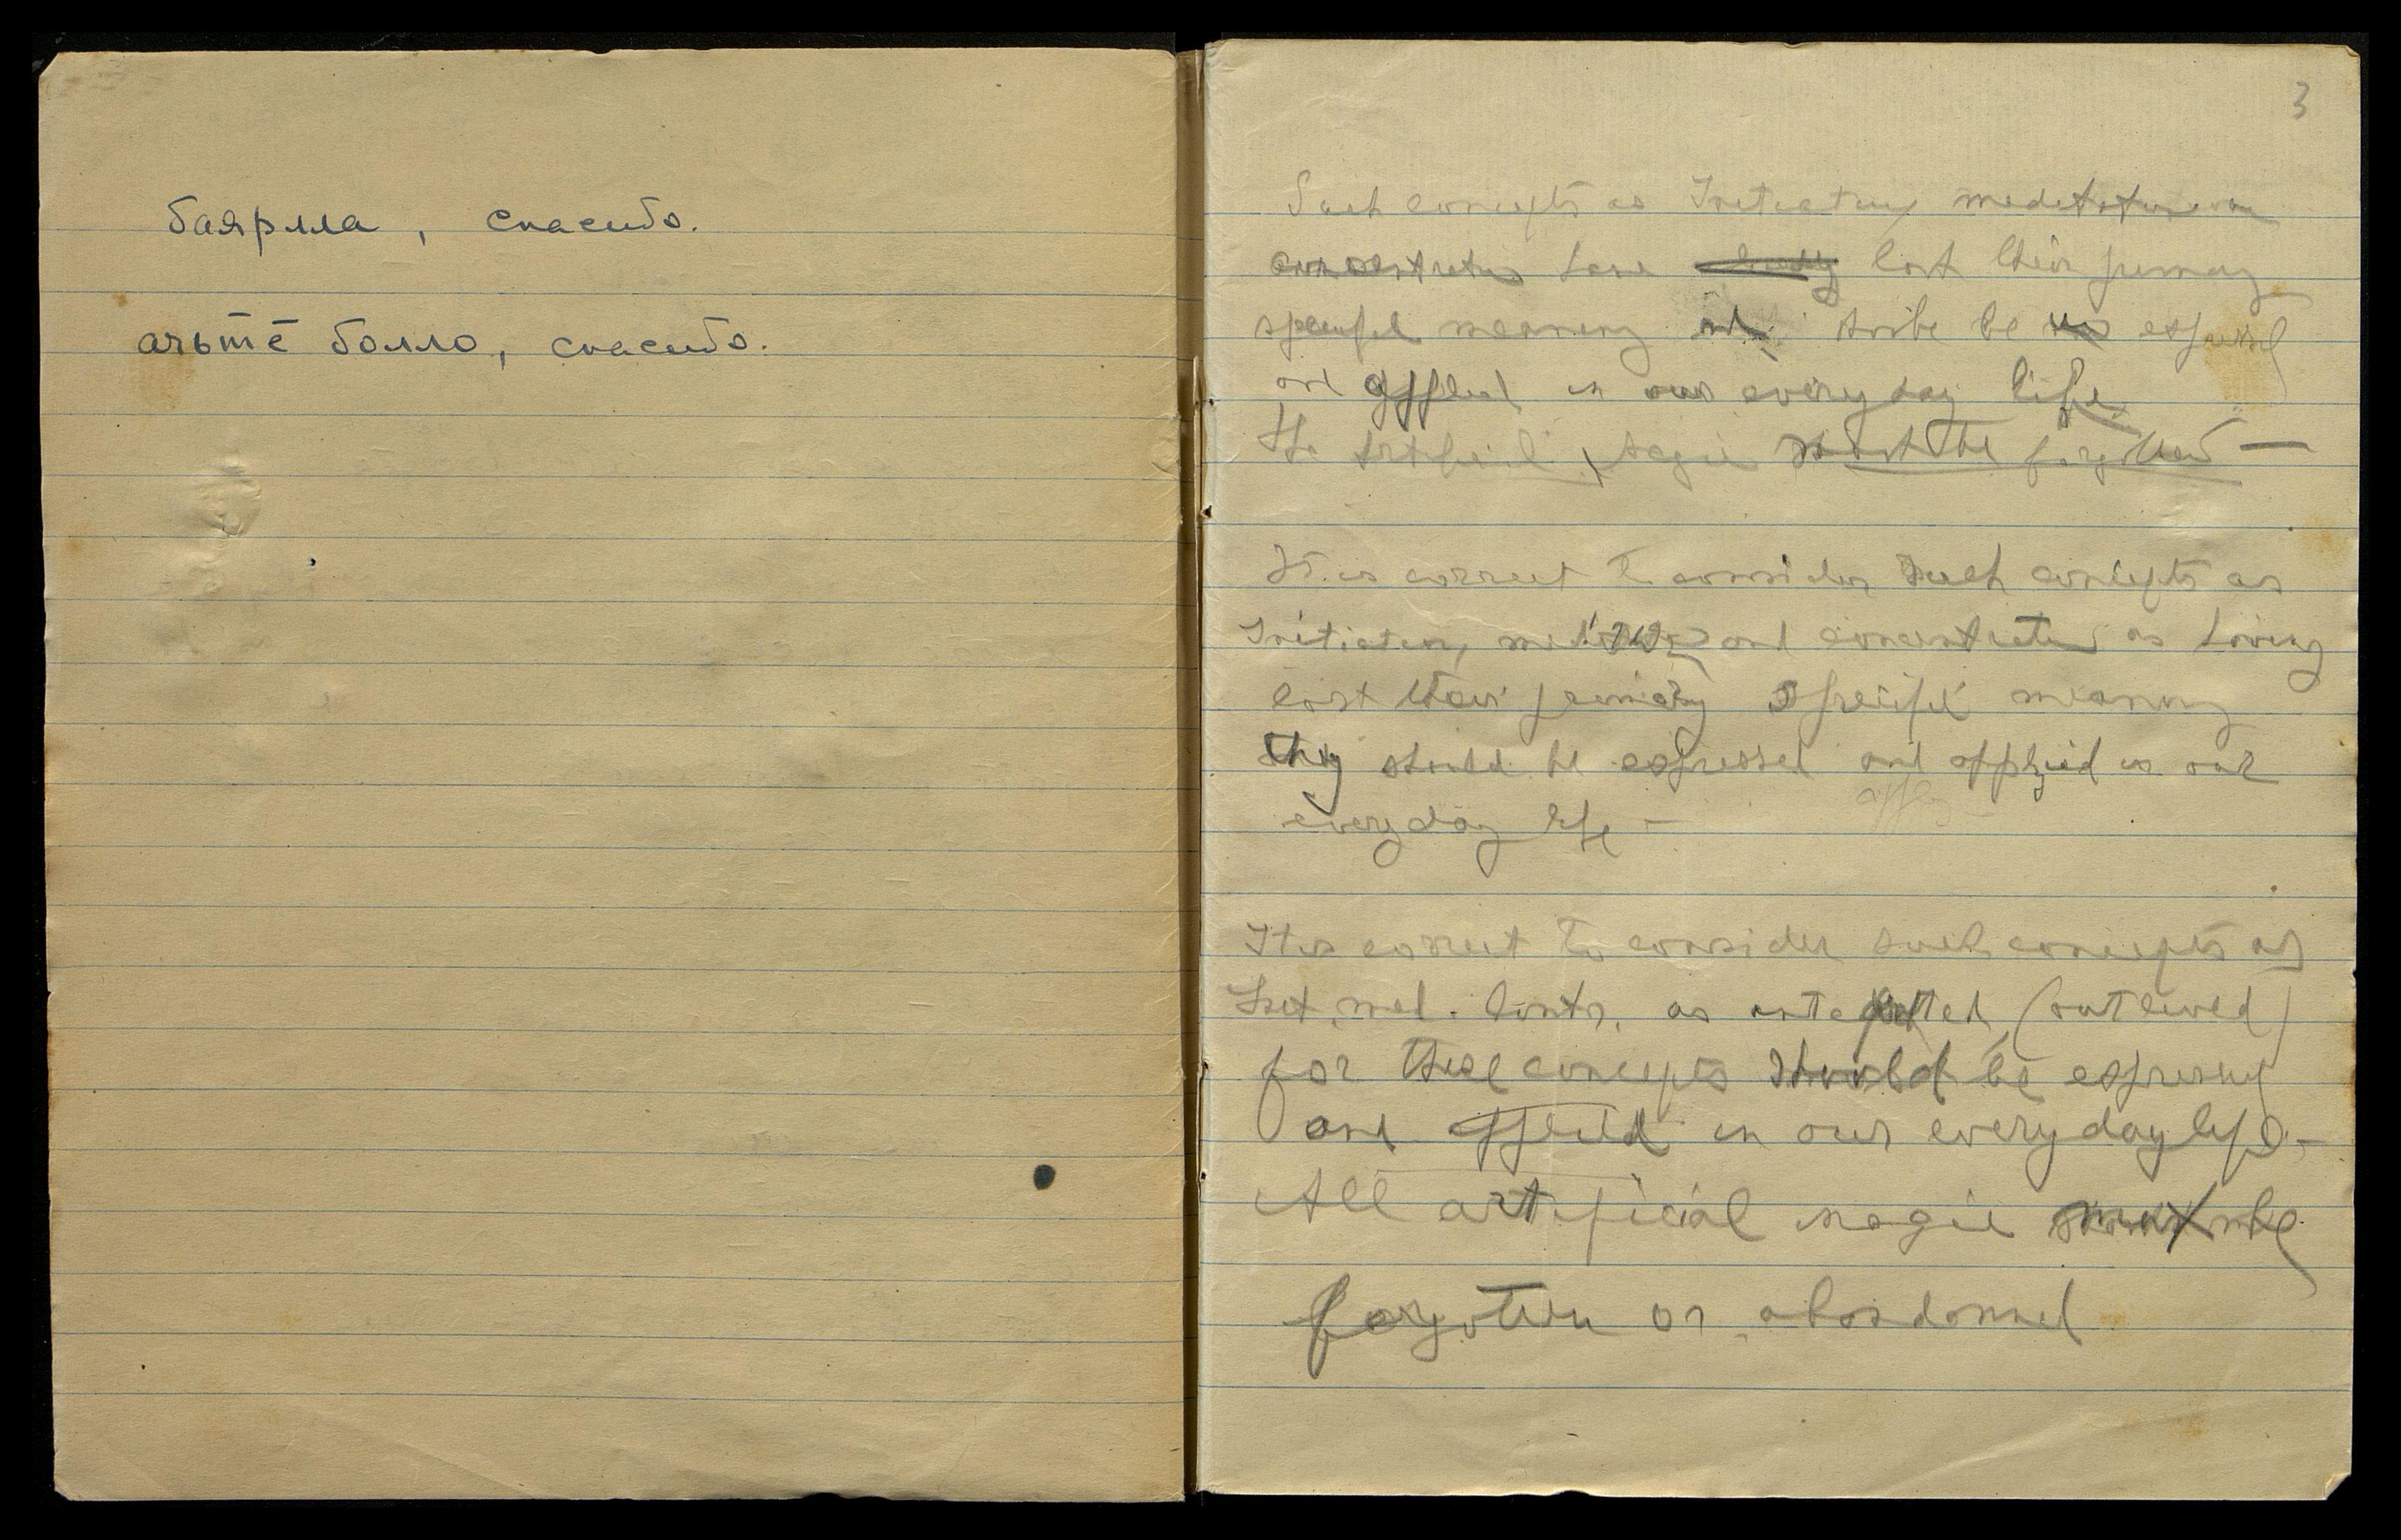 баярлла, спасибо.
ачьтē болло, спасибо.
3
Such concepts as Initiation, meditation
concentration have lost their primary
specific meaning and be expressed
and applied in our everyday life.
The artificial magic must be forgotten —
It is correct to consider such concepts as
Initiation, and concentration as having
lost their primary specific meaning
they should be expressed and applied in our
apply
everyday life —
It is correct to consider such concepts as
Init. med. Contr. as (outlived)
for these concepts should be expressed
and applied in our everyday life. —
All artificial magic must be
forgotten or abandonned